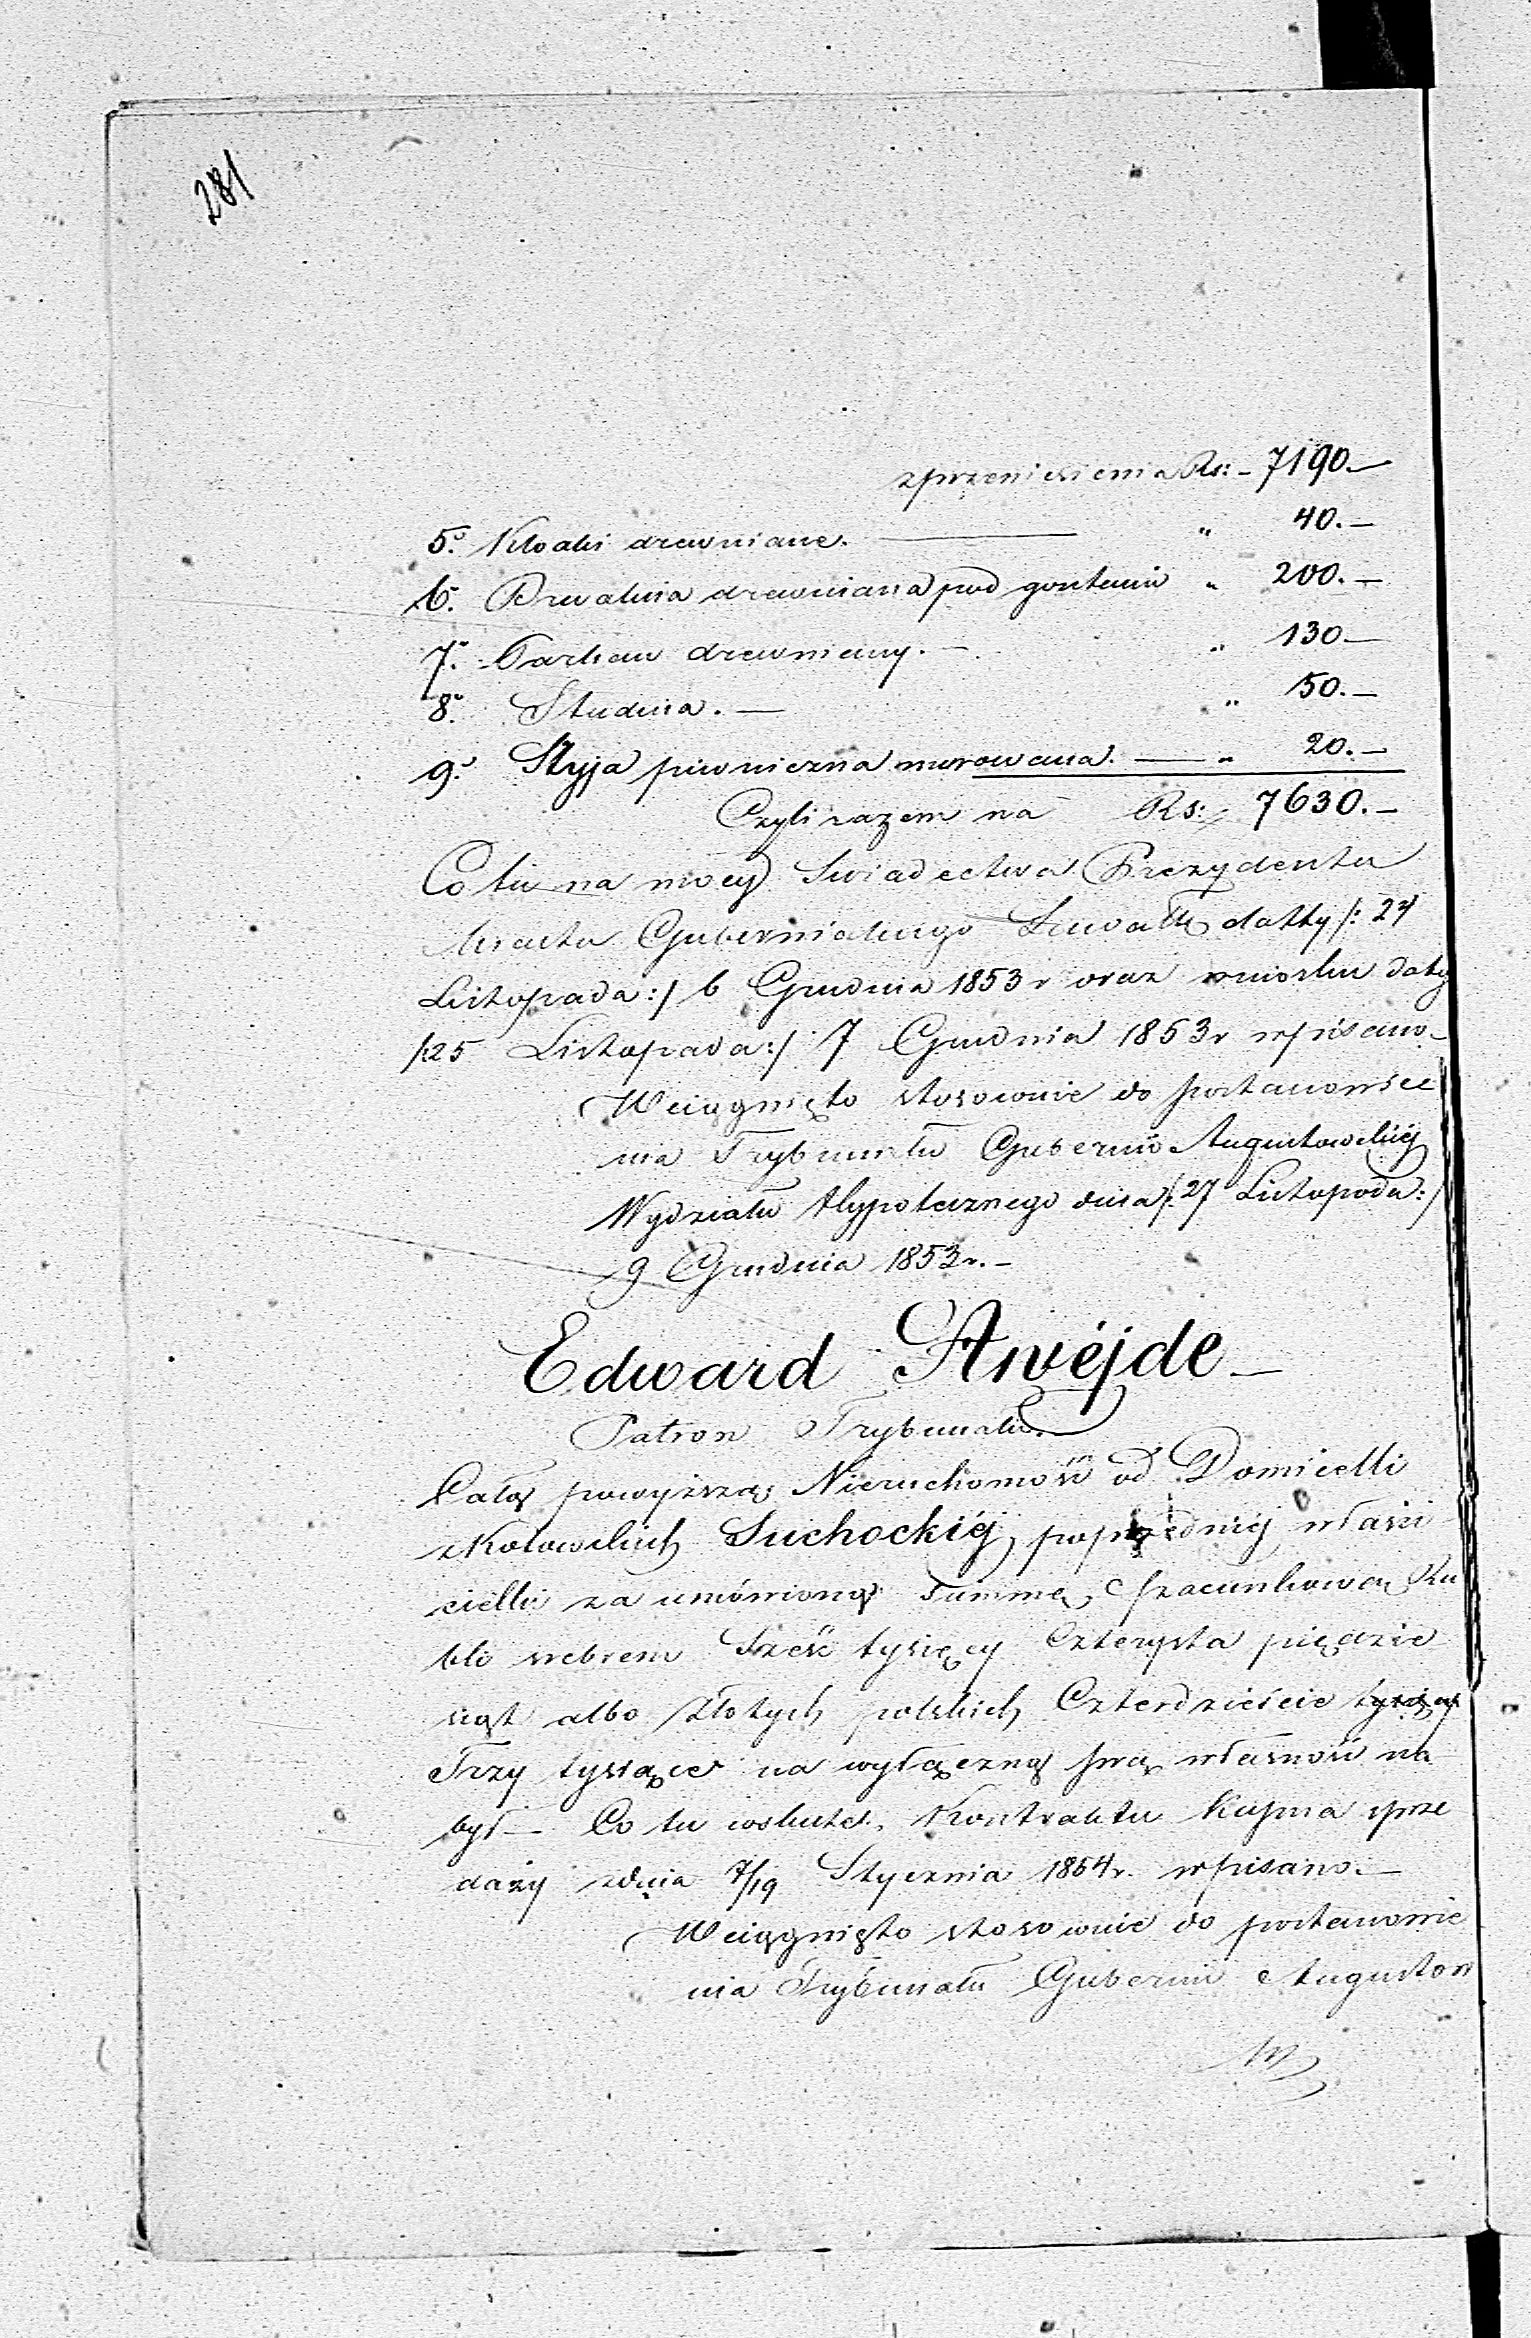 281
z przeniesienia Rs: - 7190.—
5.° Kloaki drewniane. — " 40.—
6.° Drwalnia drewniana pod gontami " 200.—
7.° Parkan drewniany. — " 130—
8.° Studnia. — " 50.—
9.° Szyja piwniczna murowana. — " 20.—
Czyli razem na Rs: 7630.—
Co tu na mocy Swiadectwa Prezydenta
Miasta Gubernialnego Suwałk datty /: 24
Listopada :/ 6 Grudnia 1853 r oraz wniosku daty
/: 25 Listopada :/ 7 Grudnia 1853 r wpisano—
Wciągnięto stosownie do postanowie
nia Trybunału Gubernii Augustowskiéj
Wydziału Hypotecznego dnia /: 27 Listopada :/
9 Grudnia 1853 r.—
Edward Awéjde —
Patron Trybunału.
Całą powyższą Nieruchomość od Domicelli
z Kotowskich Suchockiéj poprzedniéj właści
cielki za umówioną Summę Szacunkową Ru
bli srebrem Sześć tysięcy Czterysta pięćdzie
siąt albo Złotych polskich Czterdzieście tysięcy
Trzy tysiące na wyłączną swą własność na
był — Co tu wskutek Kontraktu Kupna sprze
daży zdnia 7/19 Stycznia 1854 r. wpisano.—
Wciągnięto stosownie do postanowie
nia Trybunału Gubernii Augustow